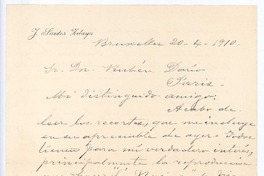 J. Santos Zelaya
Bruxelles 20-4-1910
Sr. Dn. Rubén Darío
París
Mi distinguido amigo:
Acabo de
leer los recortes, que me incluye
en su apreciable de ayer. Todos
tienen para mí verdadero interés,
principalmente la reproducción